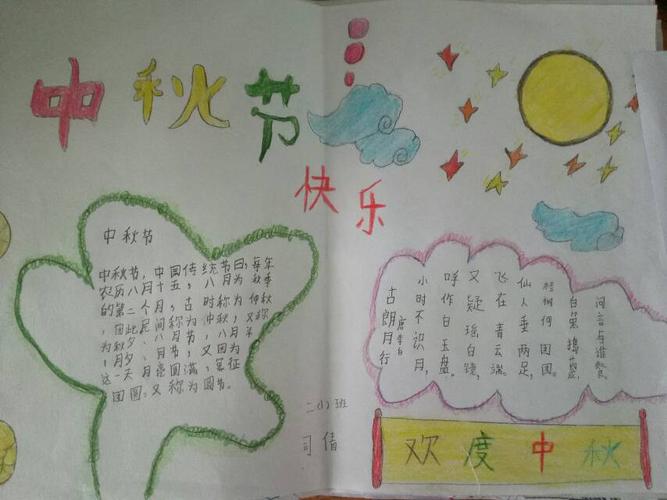 中秋节
快乐
中秋节
中秋节，中国传统节日，每年
农历八月十五，八月为秋季
的第二个月，古时称为仲秋
，因此民间称为中秋，又称
为秋夕、八月节，八月半
，月夕、月节，又因为
这一天月亮圆满，象征
团圆，又称为圆节。
古朗月行
唐李白
小时不识月，
呼作白玉盘。
又疑瑶白镜，
飞在青云端。
仙人垂两足，
桂树何团团。
白兔捣药成，
问言与谁餐。
二(1)班
司倩
欢度中秋